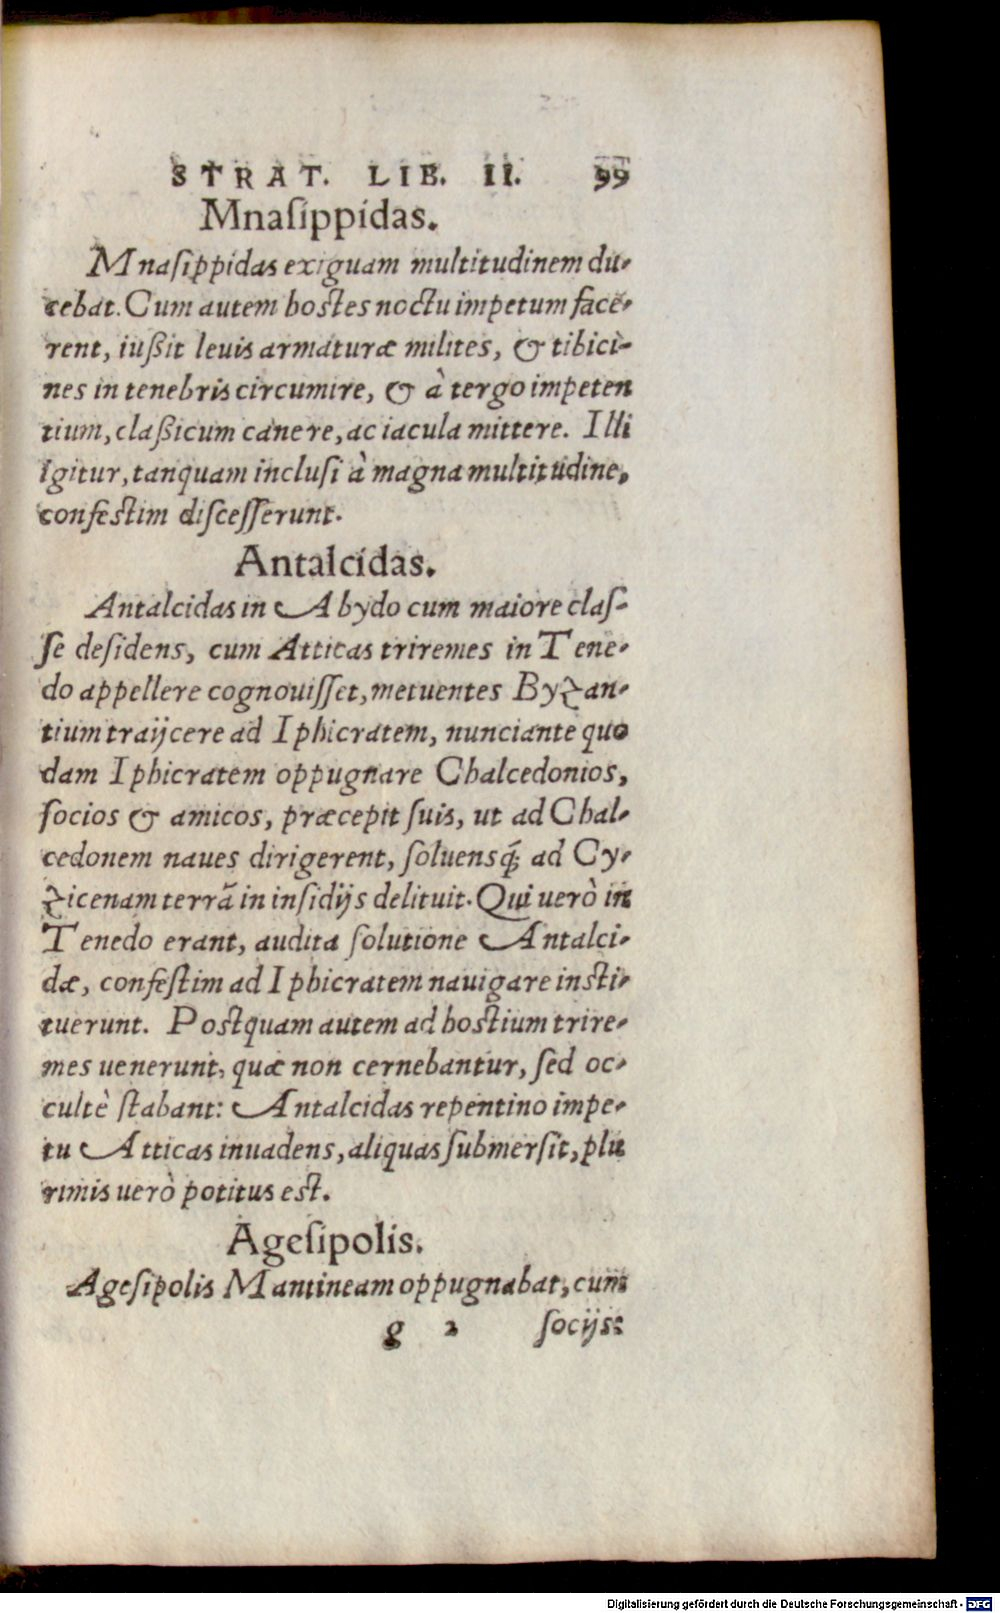 STRAT. LIB. II. 99
Mnaſippidas.
Mnaſippidas exiguam multitudinem du-
cebat. Cum autem hoſtes noctu impetum face-
rent, iußit leuis armaturæ milites, & tibici-
nes in tenebris circumire, & à tergo impeten
tium, claßicum canere, ac iacula mittere. Illi
igitur, tanquam incluſi à magna multitudine,
confeſtim diſceſſerunt.
Antalcidas.
Antalcidas in Abydo cum maiore claſ-
ſe deſidens, cum Atticas triremes in Tene-
do appellere cognouiſſet, metuentes Byzan-
tium traijcere ad Iphicratem, nunciante quo
dam Iphicratem oppugnare Chalcedonios,
ſocios & amicos, præcepit ſuis, ut ad Chal-
cedonem naues dirigerent, ſoluensq́; ad Cy-
zicenam terrã in inſidijs delituit. Qui uerò in
Tenedo erant, audita ſolutione Antalci-
dæ, confeſtim ad Iphicratem nauigare inſti-
tuerunt. Poſtquam autem ad hoſtium trire-
mes uenerunt, quæ non cernebantur, ſed oc-
cultè ſtabant: Antalcidas repentino impe-
tu Atticas inuadens, aliquas ſubmerſit, plu
rimis uerò potitus eſt.
Ageſipolis.
Ageſipolis Mantineam oppugnabat, cum
g 2 ſocijs:
Digitalisierung gefördert durch die Deutsche Forschungsgemeinschaft - DFG